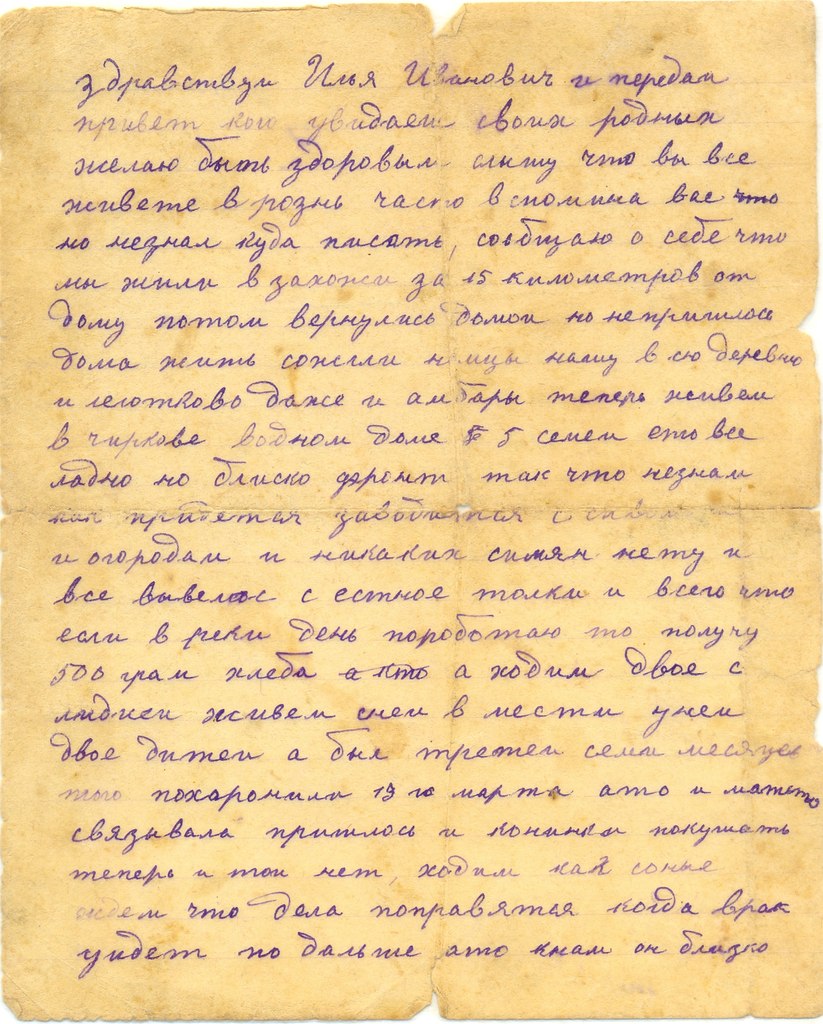 здравствуи Илья Иванович и передаи
привет кого увидаеш своих родных
желаю быть здоровым слышу что вы все
живете в рознь часто вспомина вас что
но незнал куда писать, сообщаю о себе что
мы жили в захожи за 15 километров от
дому потом вернулись домои но непришлось
дома жить сожгли немцы нашу всю деревню
и леготково даже и амбары теперь живем
в чиркове водном доме 5 семеи ето все
ладно но блиско фронт так что незнаи
как придется заводится с
и огородам и никаких симян нету и
все вывелос с естное толки и всего что
если в реки день пороботаю то получу
500 грам хлеба а кто а ходим двое с
лидкеи живем снеи в мести унеи
двое дитеи а был третеи семи месяцев
того похаронили 13 го марта ато и матето
связывала пришлось и конинки покушать
теперь и тои нет, ходим как соные
ждем что дела поправятся когда врак
уидет по дальше ато кнам он близко